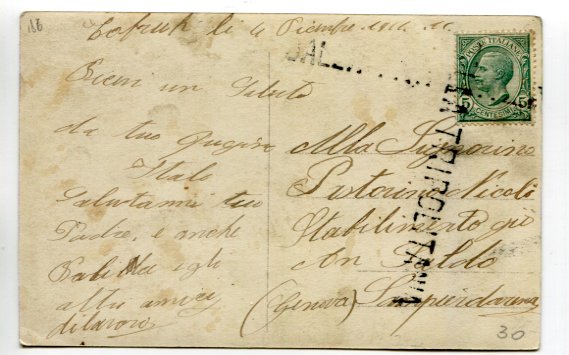 186
Tobruk li 4 Dicembre 1911
Ricevi un Saluto
da tuo Cugino
Italo
Salutami tuo
Padre, e anche
egli
altri amici
di lavoro
DALLA
TRIPOLITANIA
POSTE ITALIANE
5 CENTESIMI 5
Alla Signorina
Pastorino Nicoli
Stabilimento già
An Saldo
(Genova) Sampierdarena
30